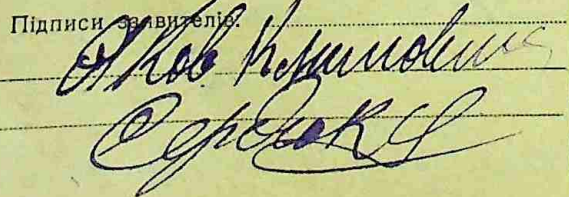 Підписи заявителів:
Яков Климович
Сердюк